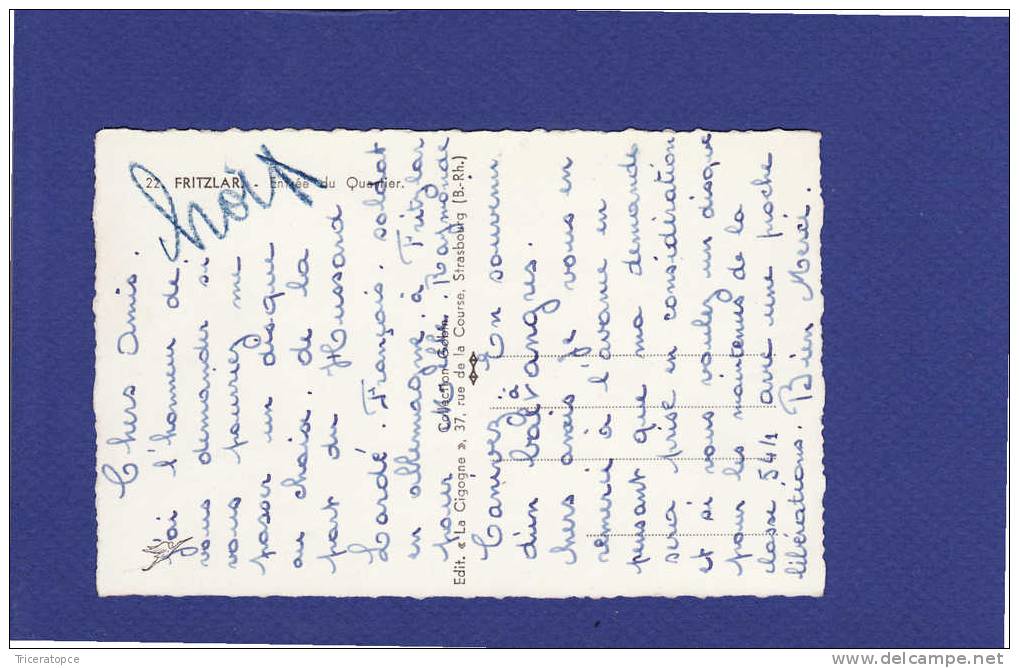 22. FRITZLAR. - Entrée du Quartier.
choix
Chers Amis.
J'ai l'honneur de
vous demander si
vous pourrez me
passer un disque
au choix. de la
part du Hussard
Lardé. Français. soldat
en allemagne. à Fritzlar
pour Melle. Raymonde
Canivez à En souvenir
d'un bal Vangres.
hers amais je vous en
remerie à l'avane en
pensant que ma demande
sera prise en considération
et si vous voulez un disque
pour les maintenus de la
classe 54/1 avec une proche
libérations. Bien Merci.
Collection Gobin
Edit. « La Cigogne », 37, rue de la Course, Strasbourg (B.-Rh.)
Triceratopce
delcampe.net